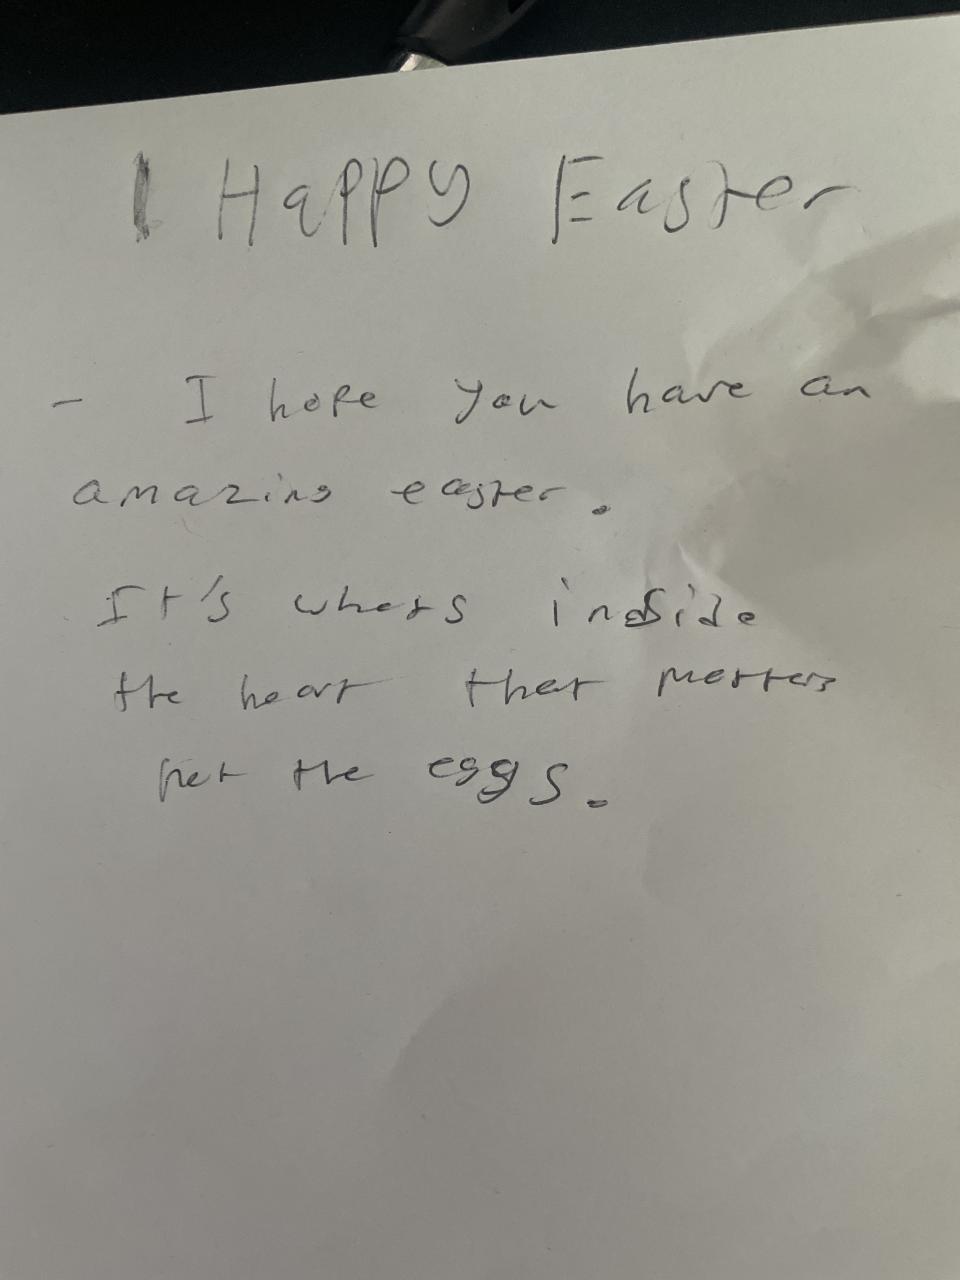 Happy Easter
- I hope you have an
amazing easter.
It's whats inside
the heart that matters
not the eggs.